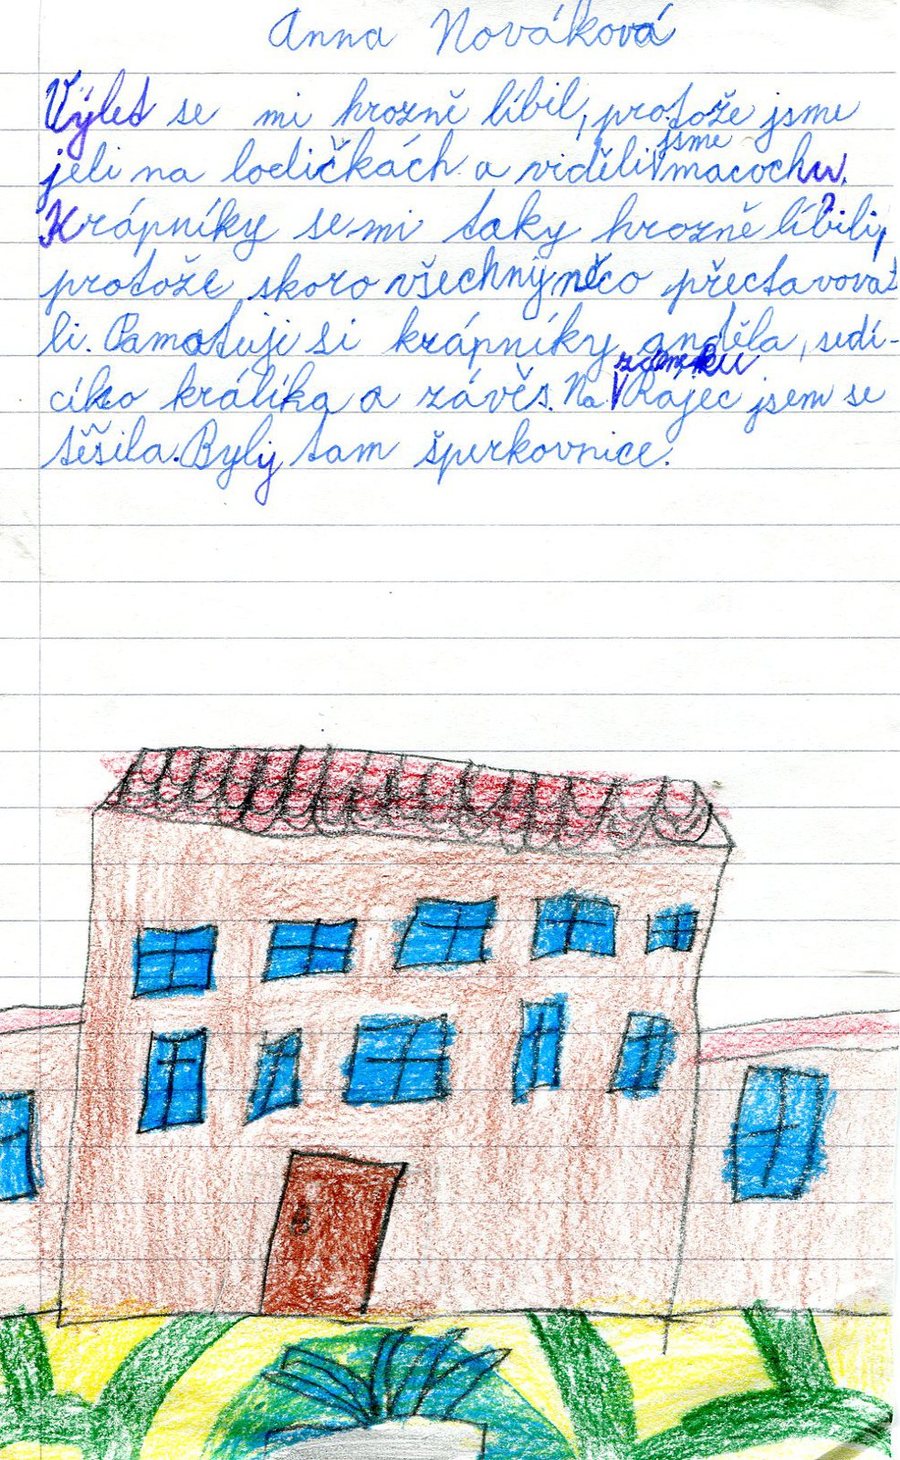 Anna Nováková
Výlet se mi hrozně líbil, protože jsme
jeli na lodičkách a viděli jsme macochu.
Krápníky se mi taky hrozně líbily,
protože skoro všechny něco přectavovat
li. Pamatuji si krápníky anděla, sedí-
cího králíka a závěs. Na zámku Rajec jsem se
těšila. Byly tam šperkovnice.